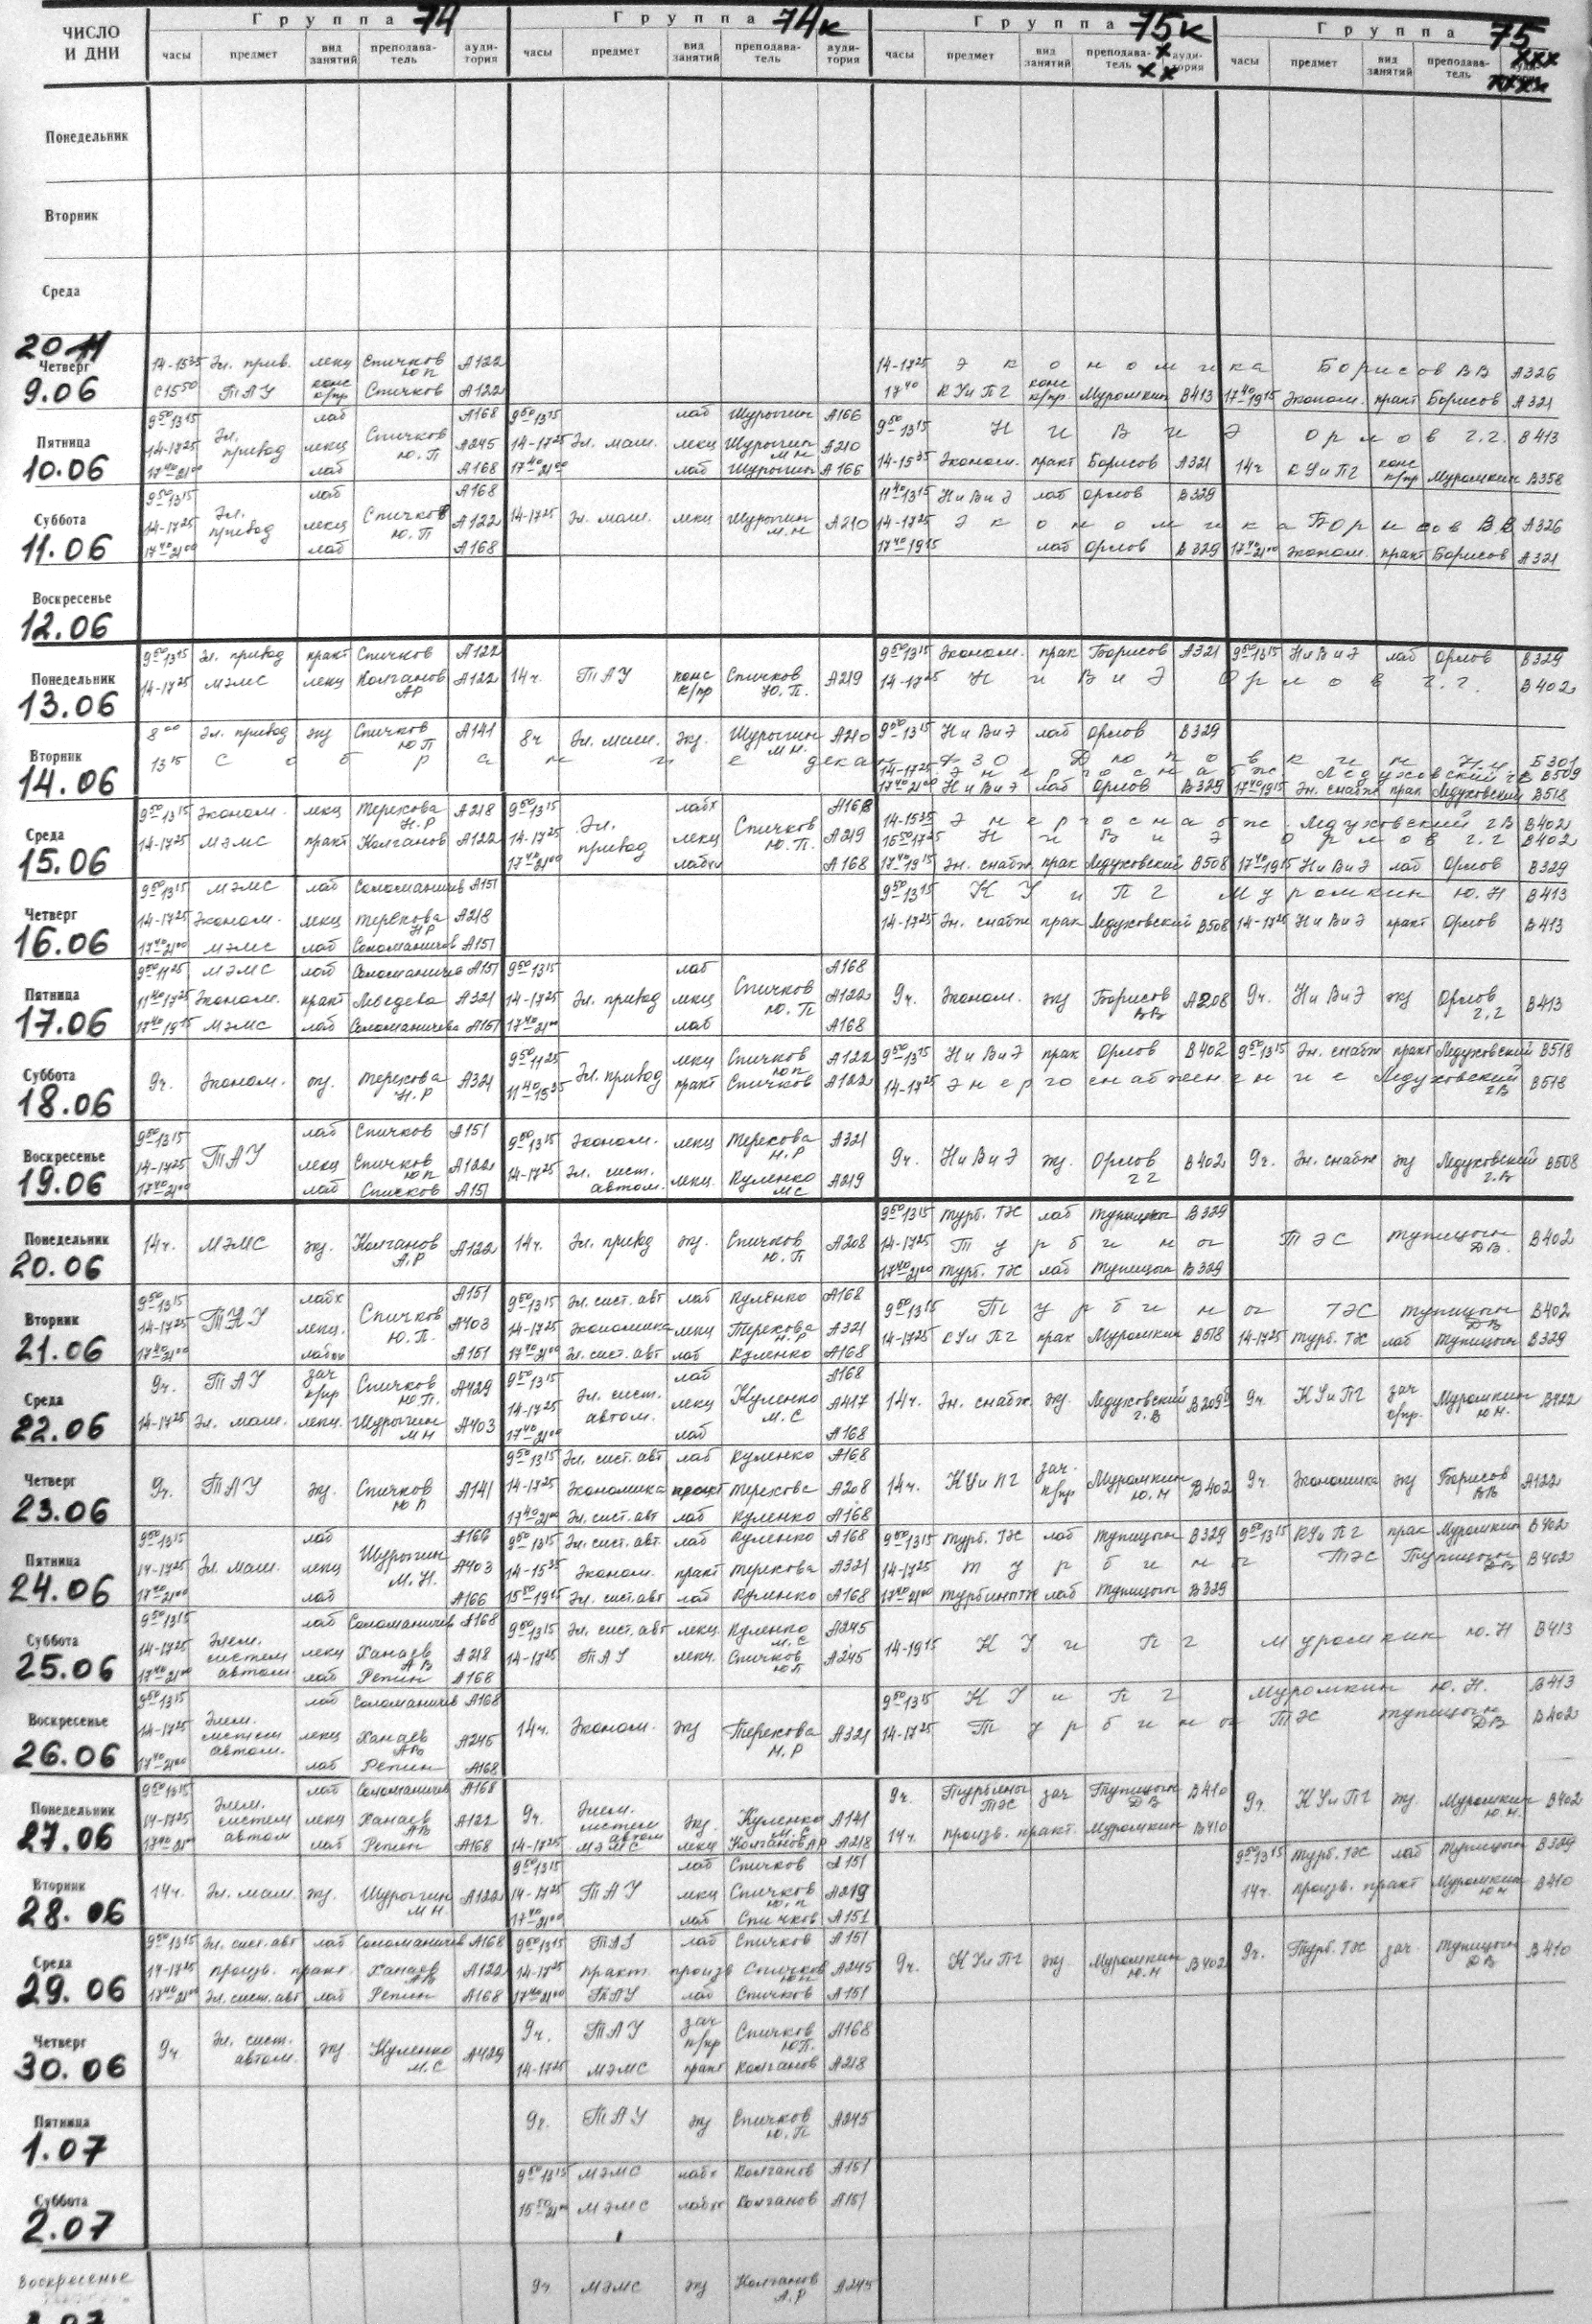 ЧИСЛО И ДНИ
Группа 74
Группа 74к
Группа 75к
Группа 75
часы предмет вид занятий преподава-тель ауди-тория
часы предмет вид занятий преподава-тель ауди-тория
часы предмет вид занятий преподава-тель ауди-тория
часы предмет вид занятий преподава-тель
Понедельник
Вторник
Среда
2011
Четверг 9.06
14-15³⁵ Эл. прив. лекц Спичков Ю П А122
с 15⁵⁰ ТАУ конс к/пр Спичков А122
14-17²⁵ Экономика Борисов ВВ А326
17⁴⁰ КУиПГ конс к/пр Муромкин В413
17⁴⁰-19¹⁵ Эконом. практ Борисов А321
Пятница 10.06
9⁵⁰-13¹⁵ лаб А168
14-17²⁵ Эл. привод лекц Спичков Ю.П А245
17⁴⁰-21⁰⁰ лаб А168
9⁵⁰-13¹⁵ лаб Шурыгин А166
14-17²⁵ Эл. маш. лекц Шурыгин М Н А210
17⁴⁰-21⁰⁰ лаб Шурыгин А166
9⁵⁰-13¹⁵ НиВиЭ Орлов Г.Г. В413
14-15³⁵ Эконом. практ Борисов А321
14ч КУиПГ конс к/пр Муромкин В358
Суббота 11.06
9⁵⁰-13¹⁵ лаб А168
14-17²⁵ Эл. привод лекц Спичков Ю.П А122
17⁴⁰-21⁰⁰ лаб А168
14-17²⁵ Эл. маш. лекц Шурыгин М.Н А210
11⁴⁰-13¹⁵ НиВиЭ лаб Орлов В329
14-17²⁵ Экономика Борисов ВВ А326
17⁴⁰-19¹⁵ лаб Орлов В329
17⁴⁰-21⁰⁰ Эконом. практ Борисов А321
Воскресенье 12.06
Понедельник 13.06
9⁵⁰-13¹⁵ Эл. привод практ Спичков А122
14-17²⁵ МЭМС лекц Колганов АР А122
14ч. ТАУ конс к/пр Спичков Ю.П. А219
9⁵⁰-13¹⁵ Эконом. прак Борисов А321
9⁵⁰-13¹⁵ НиВиЭ лаб Орлов В329
14-17²⁵ НиВиЭ Орлов Г.Г. В402
Вторник 14.06
8⁰⁰ Эл. привод экз Спичков Ю П А141
8ч Эл. маш. экз. Шурыгин М Н. А210
9⁵⁰-13¹⁵ НиВиЭ лаб Орлов В329
13¹⁵ Собрание декан ФЗО Н.И Б301
14-17²⁵ Энергоснабж. Ледуховский ГВ В509
17⁴⁰-21⁰⁰ НиВиЭ лаб Орлов В329
17⁴⁰-19¹⁵ Эн. снабж прак Ледуховский В518
Среда 15.06
9⁵⁰-13¹⁵ Эконом. лекц Терехова Н.Р А218
14-17²⁵ МЭМС практ Колганов А122
9⁵⁰-13¹⁵ лабх А168
14-17²⁵ Эл. привод лекц Спичков Ю.П. А219
17⁴⁰-21⁰⁰ лабхх А168
14-15³⁵ Энергоснабж. Ледуховский ГВ В402
15⁵⁰-17²⁵ НиВиЭ Орлов Г.Г В402
17⁴⁰-19¹⁵ Эн. снабж прак Ледуховский В508
17⁴⁰-19¹⁵ НиВиЭ лаб Орлов В329
Четверг 16.06
9⁵⁰-13¹⁵ МЭМС лаб Соломаничев А151
14-17²⁵ Эконом. лекц Терехова НР А218
17⁴⁰-21⁰⁰ МЭМС лаб Соломаничев А151
9⁵⁰-13¹⁵ КУиПГ Муромкин Ю.Н В413
14-17²⁵ Эн. снабж прак Ледуховский В508
14-17²⁵ НиВиЭ практ Орлов В413
Пятница 17.06
9⁵⁰-11²⁵ МЭМС лаб Соломаничев А151
11⁴⁰-17²⁵ Эконом. практ Лебедева А321
17⁴⁰-19¹⁵ МЭМС лаб Соломаничева А151
9⁵⁰-13¹⁵ лаб А168
14-17²⁵ Эл. привод лекц Спичков Ю.П А122
17⁴⁰-21⁰⁰ лаб А168
9ч. Эконом. экз Борисов ВВ А208
9ч. НиВиЭ экз Орлов Г.Г В413
Суббота 18.06
9ч. Эконом. экз. Терехова Н.Р А321
9⁵⁰-11²⁵ Эл. привод лекц Спичков Ю П А122
11⁴⁰-15³⁵ практ Спичков А122
9⁵⁰-13¹⁵ НиВиЭ прак Орлов В402
9⁵⁰-13¹⁵ Эн. снабж практ Ледуховский В518
14-17²⁵ Энергоснабжение Ледуховский ГВ В518
Воскресенье 19.06
9⁵⁰-13¹⁵ лаб Спичков А151
14-17²⁵ ТАУ лекц Спичков Ю П А122
17⁴⁰-21⁰⁰ лаб Спичков А151
9⁵⁰-13¹⁵ Эконом. лекц Терехова Н.Р А321
14-17²⁵ Эл. сист. автом. лекц. Куленко МС А219
9ч. НиВиЭ экз. Орлов ГГ В402
9ч. Эн. снабж экз Ледуховский Г.В В508
Понедельник 20.06
14ч. МЭМС экз. Колганов А.Р А122
14ч. Эл. привод экз. Спичков Ю.П А208
9⁵⁰-13¹⁵ турб. ТЭС лаб Тупицын В329
14-17²⁵ Турбины ТЭС Тупицын Д В. В402
17⁴⁰-21⁰⁰ турб. ТЭС лаб Тупицын В329
Вторник 21.06
9⁵⁰-13¹⁵ лабх А151
14-17²⁵ ТАУ лекц. Спичков Ю.П. А403
17⁴⁰-21⁰⁰ лабхх А151
9⁵⁰-13¹⁵ Эл. сист. авт лаб Куленко А168
14-17²⁵ Экономика лекц Терехова Н.Р А321
17⁴⁰-21⁰⁰ Эл. сист. авт лаб Куленко А168
9⁵⁰-13¹⁵ Турбины ТЭС Тупицын ДВ В402
14-17²⁵ КУиПГ прак Муромкин В518
14-17²⁵ турб. ТЭС лаб Тупицын В329
Среда 22.06
9ч. ТАУ зач к/пр Спичков Ю.П. А429
14-17²⁵ Эл. маш. лекц. Шурыгин М Н А403
9⁵⁰-13¹⁵ лаб А168
14-17²⁵ Эл. сист. автом. лекц Куленко М.С А417
17⁴⁰-21⁰⁰ лаб А168
14ч. Эн. снабж. экз. Ледуховский Г.В В209
9ч КУиПГ зач к/пр. Муромкин Ю Н. В422
Четверг 23.06
9ч. ТАУ экз. Спичков Ю П А141
9⁵⁰-13¹⁵ Эл. сист. авт лаб Куленко А168
14-17²⁵ Экономика практ Терехова А208
17⁴⁰-21⁰⁰ Эл. сист. авт лаб Куленко А168
14ч. КУиПГ зач. к/пр Муромкин Ю.Н В402
9ч. Экономика экз Борисов ВВ А122
Пятница 24.06
9⁵⁰-13¹⁵ лаб А166
14-17²⁵ Эл. маш. лекц Шурыгин М.Н. А403
17⁴⁰-21⁰⁰ лаб А166
9⁵⁰-13¹⁵ Эл. сист. авт лаб Куленко А168
14-15³⁵ Эконом. практ Терехова А321
15⁵⁰-19¹⁵ Эл. сист. авт лаб Куленко А168
9⁵⁰-13¹⁵ турб. ТЭС лаб Тупицын В329
9⁵⁰-13¹⁵ КУиПГ прак Муромкин В402
14-17²⁵ турбины ТЭС Тупицын ДВ В402
17⁴⁰-21⁰⁰ лаб Тупицын В329
Суббота 25.06
9⁵⁰-13¹⁵ лаб Соломаничев А168
14-17²⁵ Элем. систем автом лекц Ханаев АВ А218
17⁴⁰-21⁰⁰ лаб Репин А168
9⁵⁰-13¹⁵ Эл. сист. авт лекц. Куленко М.С А245
14-17²⁵ ТАУ лекц. Спичков Ю П А245
14-19¹⁵ КУиПГ Муромкин Ю.Н В413
Воскресенье 26.06
9⁵⁰-13¹⁵ лаб Соломаничев А168
14-17²⁵ Элем. систем автом. лекц Ханаев АВ А245
17⁴⁰-21⁰⁰ лаб Репин А168
14ч. Эконом. экз Терехова Н.Р А321
9⁵⁰-13¹⁵ КУиПГ Муромкин Ю.Н. В413
14-17²⁵ Турбины ТЭС Тупицын ДВ В402
Понедельник 27.06
9⁵⁰-13¹⁵ лаб Соломаничев А168
14-17²⁵ Элем. систем автом лекц Ханаев АВ А122
17⁴⁰-21⁰⁰ лаб Репин А168
9ч. Элем. систем автом экз. Куленко М.С А141
14-17²⁵ МЭМС лекц Колганов АР А218
9ч. Турбины ТЭС зач Тупицын ДВ В410
14ч. произв. практ. Муромкин В410
9ч. КУиПГ экз. Муромкин Ю.Н. В402
Вторник 28.06
14ч. Эл. маш. экз. Шурыгин М Н А122
9⁵⁰-13¹⁵ лаб Спичков А151
14-17²⁵ ТАУ лекц Спичков Ю.П А219
17⁴⁰-21⁰⁰ лаб Спичков А151
9⁵⁰-13¹⁵ турб. ТЭС лаб Тупицын В329
14ч. произв. практ Муромкин Ю Н В410
Среда 29.06
9⁵⁰-13¹⁵ Эл. сист. авт лаб Соломаничев А168
14-17²⁵ произв. практ. Ханаев АВ А122
17⁴⁰-21⁰⁰ Эл. сист. авт лаб Репин А168
9⁵⁰-13¹⁵ ТАУ лаб Спичков А151
14-17²⁵ практ. произв Спичков Ю П А245
17⁴⁰-21⁰⁰ ТАУ лаб Спичков А151
9ч. КУиПГ экз Муромкин Ю.Н В402
9ч. Турб. ТЭС зач. Тупицын ДВ В410
Четверг 30.06
9ч Эл. сист. автом. экз Куленко М.С А429
9ч. ТАУ зач к/пр Спичков Ю.П. А168
14-17²⁵ МЭМС практ Колганов А218
Пятница 1.07
9ч. ТАУ экз Спичков Ю.П А245
Суббота 2.07
9⁵⁰-13¹⁵ МЭМС лабх Колганов А151
15⁵⁰-21⁰⁰ МЭМС лабхх Колганов А151
Воскресенье
9ч МЭМС экз Колганов А.Р А245